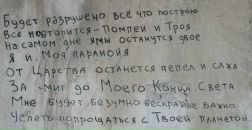 Будет разрушено всё что построю
Всё повторится - Помпеи и Троя
На самом дне ямы останутся двое
Я и Моя паранойя
От Царства останется пепел и сажа
За миг до Моего Конца Света
Мне будет безумно бескрайне важно
Успеть попрощаться с Твоей планетой